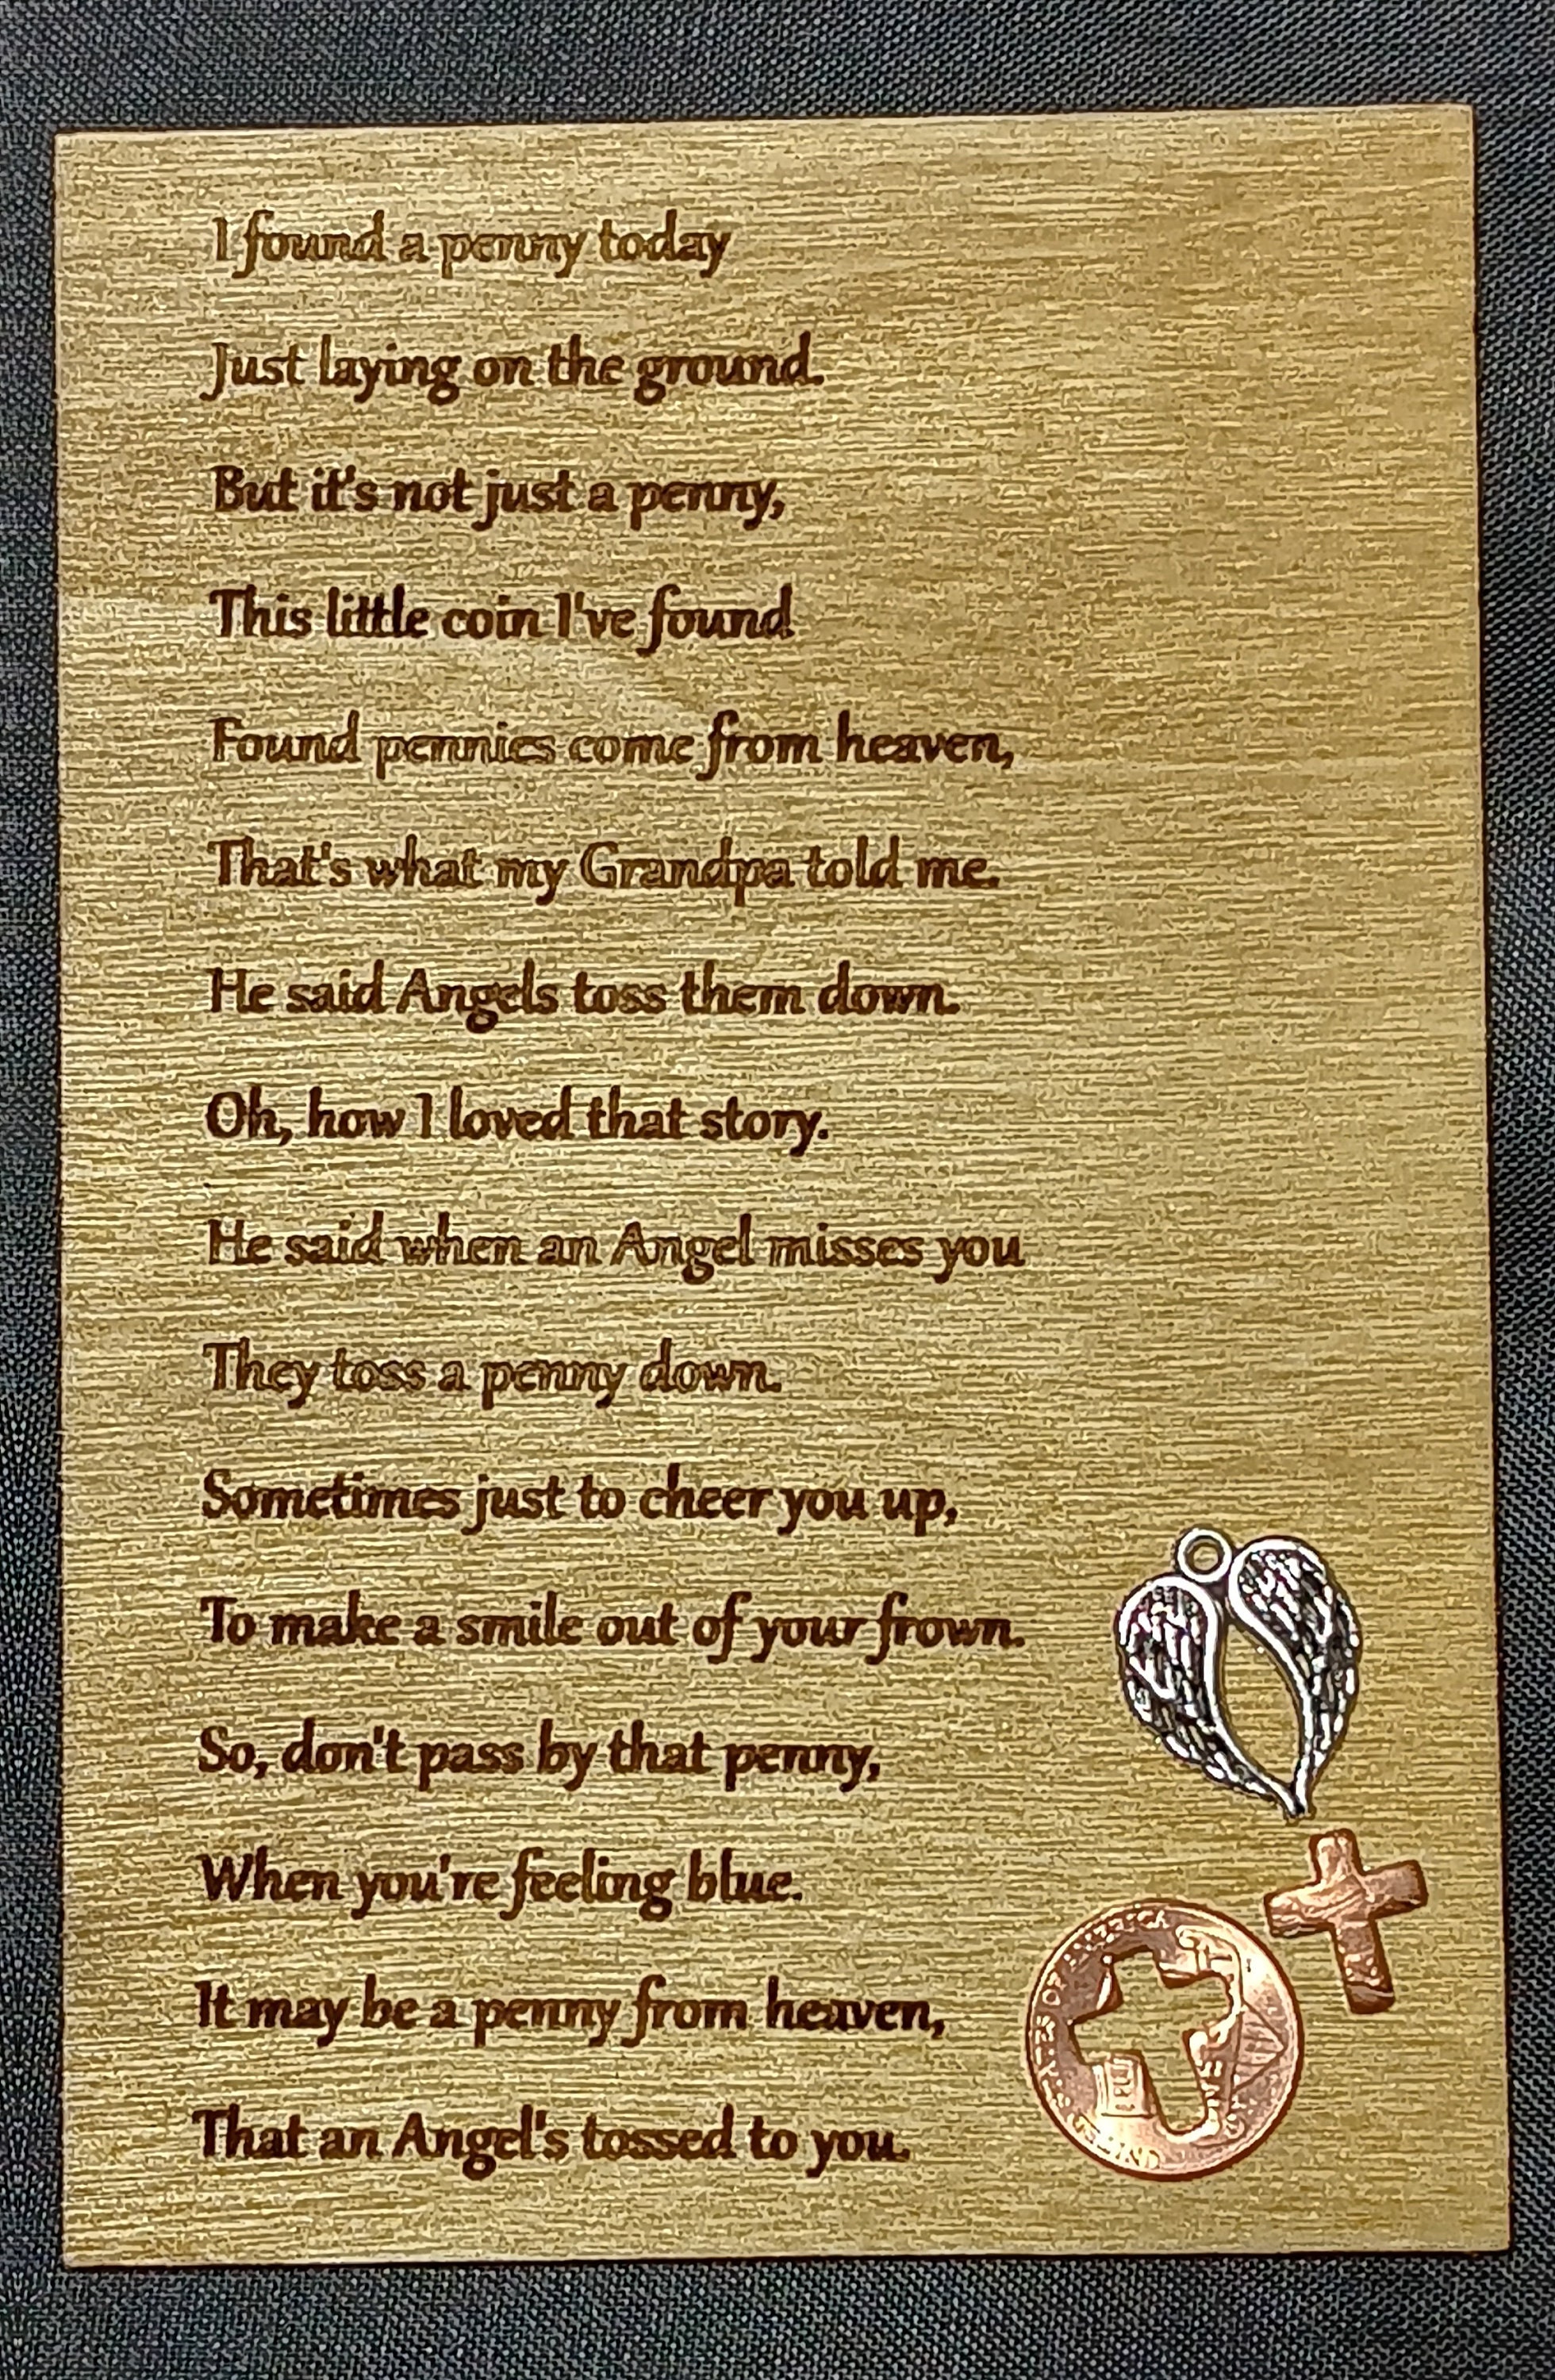 I found a penny today
Just laying on the ground.
But it's not just a penny,
This little coin I've found
Found pennies come from heaven,
That's what my Grandpa told me.
He said Angels toss them down.
Oh, how I loved that story.
He said when an Angel misses you
They toss a penny down.
Sometimes just to cheer you up,
To make a smile out of your frown.
So, don't pass by that penny,
When you're feeling blue.
It may be a penny from heaven,
That an Angel's tossed to you.